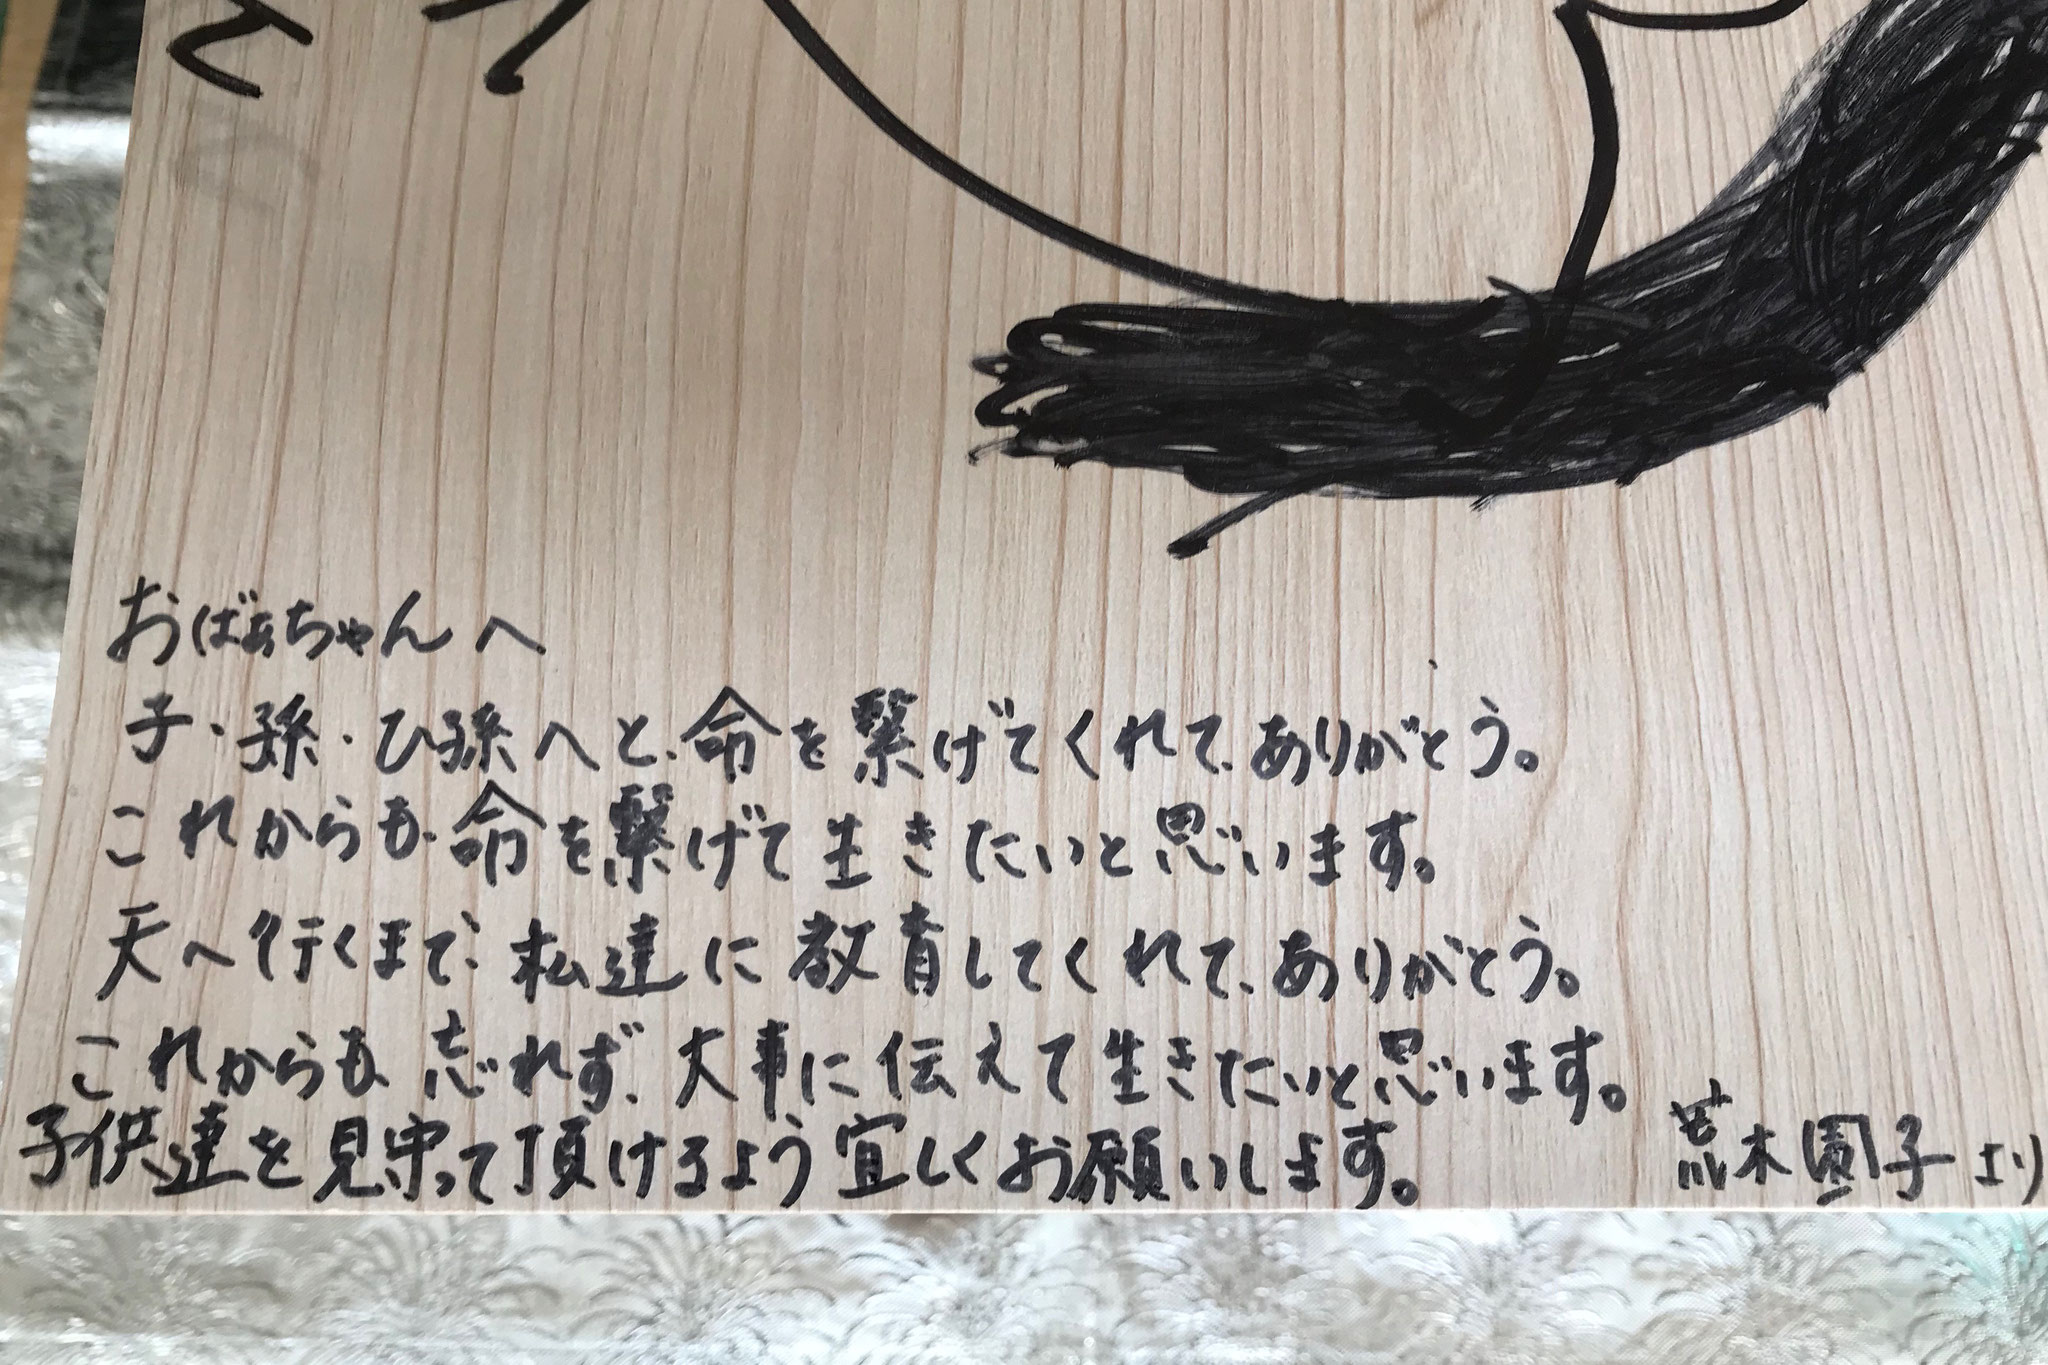 おばあちゃんへ
子・孫・ひ孫へと、命を繋げてくれて、ありがとう。
これからも、命を繋げて生きたいと思います。
天へ行くまで、私達に教育してくれて、ありがとう。
これからも、忘れず、大事に伝えて生きたいと思います。
子供達を見守って頂けるよう宜しくお願いします。
荒木園子より